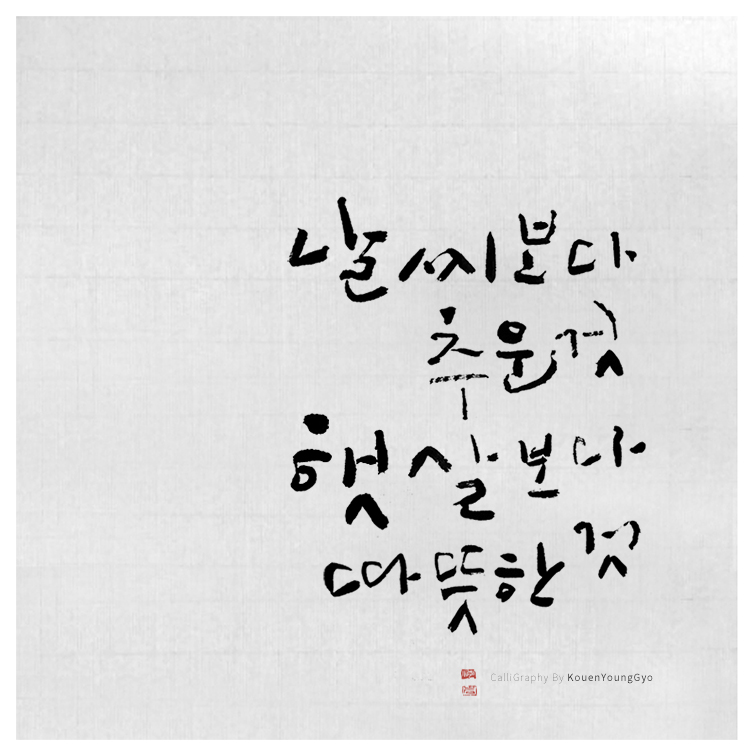 날씨보다
추운것
햇살보다
따뜻한것
CalliGraphy By KouenYoungGyo